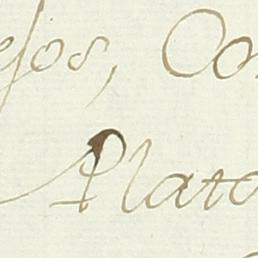 esos, Con
Plato